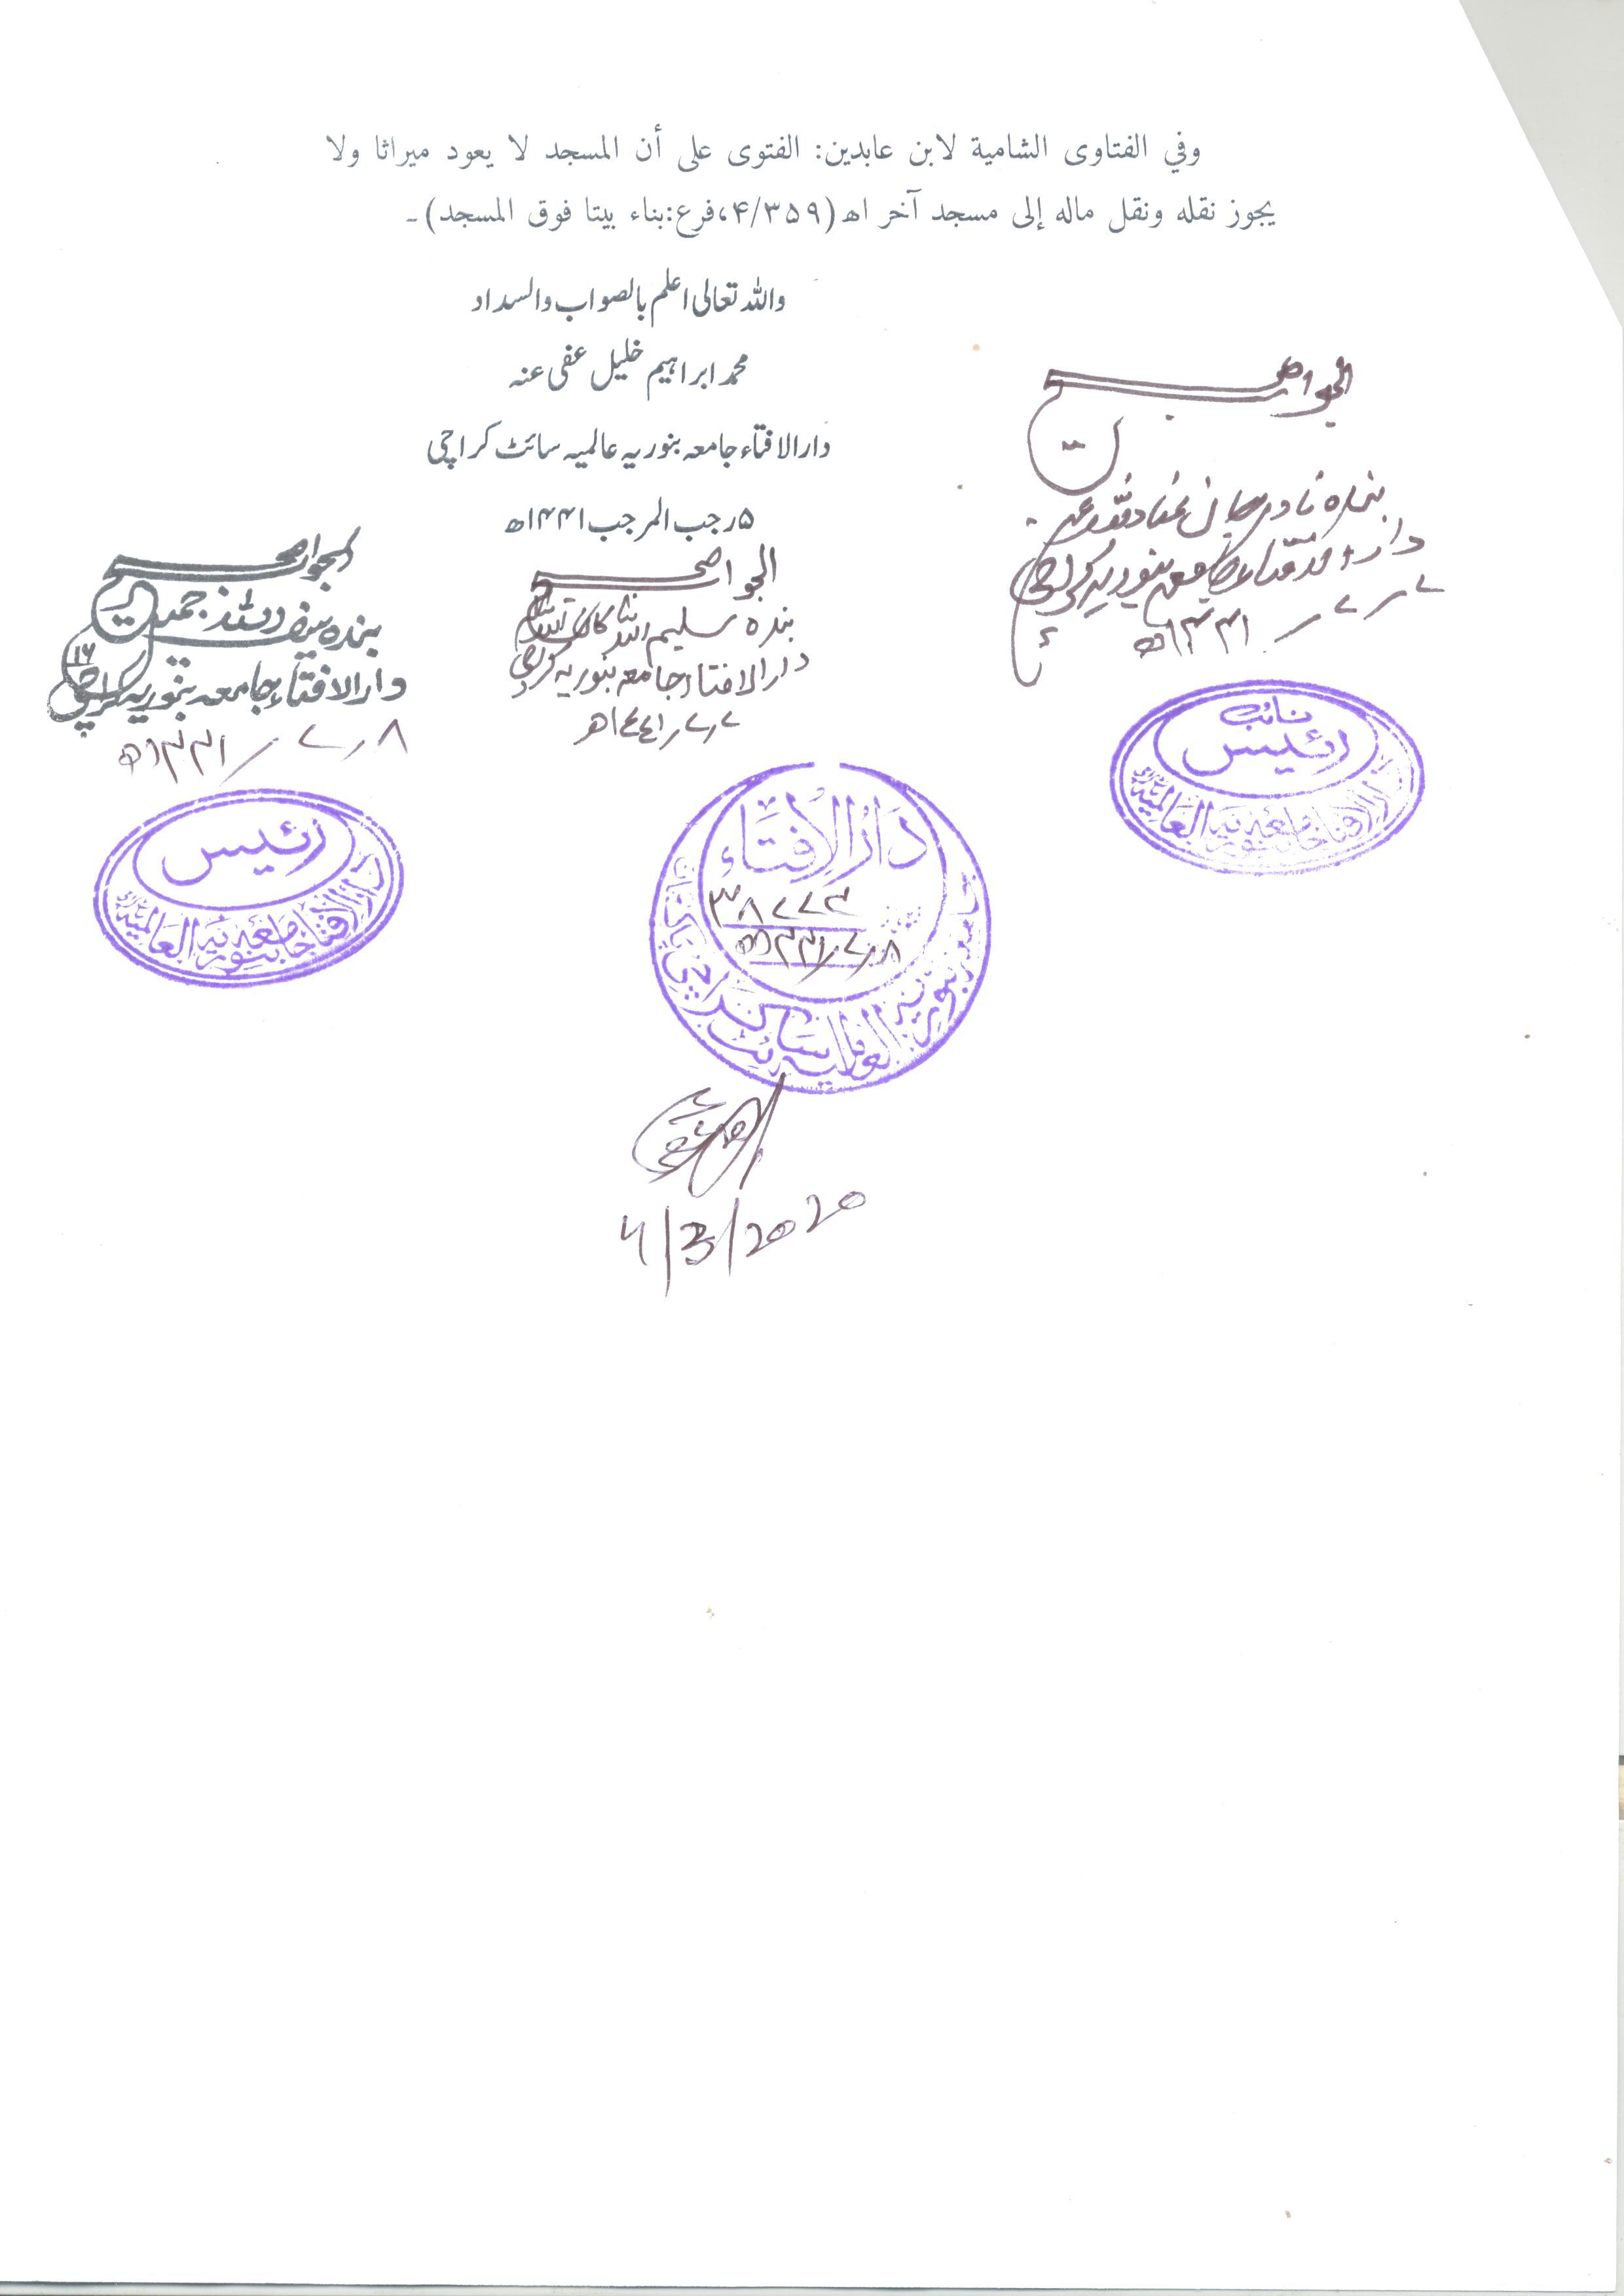 وفي الفتاوى الشامية لابن عابدين: الفتوى على أن المسجد لا يعود ميراثا ولا
يجوز نقله ونقل ماله إلى مسجد آخر اھ (۴/۳۵۹،فرع:بناء بيتا فوق المسجد)۔
واللہ تعالی اعلم بالصواب والسداد
محمد ابراہیم خلیل عفی عنہ
دارالافتاء جامعہ بنوریہ عالمیہ سائٹ کراچی
۵رجب المرجب ۱۴۴۱ھ
الجواب صحیح
بندہ نادر جان
دارالافتاء جامعہ بنوریہ کراچی
۷ / ۷ / ۱۴۴۱ھ
نائب
رئیس
دارالافتاء جامعہ بنوریہ العالمیہ
الجواب صحیح
بندہ سلیم اللہ
دارالافتاء جامعہ بنوریہ کراچی
۷ / ۷ / ١٤٤١ھ
الجواب صحیح
بندہ سیف اللہ جمیل
دارالافتاء جامعہ بنوریہ کراچی
۸ / ۷ / ۱۴۴۱ھ
رئیس
دارالافتاء جامعہ بنوریہ العالمیہ
دَارُالاِفتَاء
۸ / ۷ / ۱۴۴۱ھ
جامعہ بنوریہ العالمیہ سائٹ کراچی
/3/2020